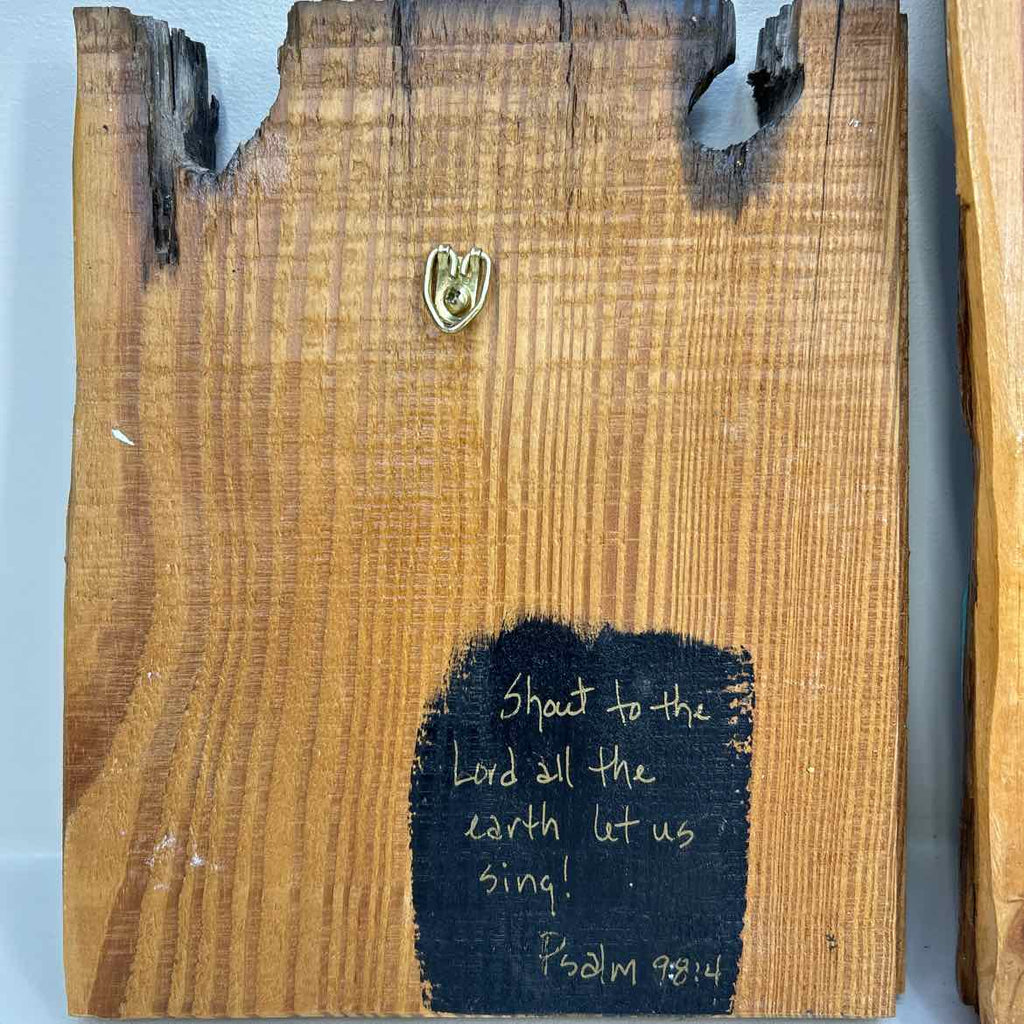 Shout to the
Lord all the
earth let us
sing!
Psalm 9:8:4